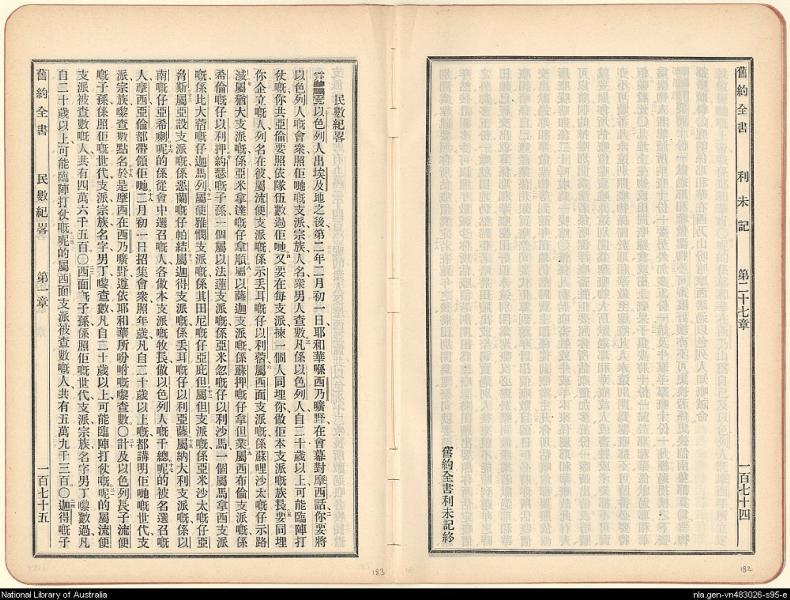 舊約全書 利未記 第二十七章 一百七十四
舊約全書利未記終
民數紀畧
以色列人出埃及地之後第二年二月初一日耶和華喺西乃曠野在會幕對摩西話你要將
以色列人嘅會衆照佢哋嘅支派宗族人名衆男人查數凡係以色列人自二十歲以上可能臨陣打
仗嘅你共亞倫要照依隊伍數過佢哋又要在每支派揀一個人同埋你做佢本支派嘅族長要同埋
你企立嘅人列名在彼屬流便支派嘅係示丟耳嘅仔以利蓿屬西面支派嘅係蘇哩沙太嘅仔示路
滅屬猶大支派嘅係亞米拿達嘅仔拿順屬以薩迦支派嘅係蘇押嘅仔拿但業屬西布倫支派嘅係
希倫嘅仔以利押約瑟嘅子孫一個屬以法蓮支派嘅係亞米忽嘅仔以利沙馬一個屬馬拿西支派
嘅係比大蓿嘅仔迦馬列屬便雅憫支派嘅係其田尼嘅仔亞庇但屬但支派嘅係亞米沙太嘅仔亞
希屬亞設支派嘅係惡蘭嘅仔帕結屬迦得支派嘅係丟耳嘅仔以利亞薩屬納大利支派嘅係以
南嘅仔亞希喇呢的係從會中選召嘅人各做本支派嘅牧長做以色列人嘅千總呢的被名選召嘅
人摩西亞倫都帶領佢哋二月初一日招集會衆照年歲凡自二十歲以上嘅都講明佢哋嘅世代支
派宗族嚟查數點名於是摩西在西乃曠野遵依耶和華所吩咐嘅嚟查數〇計及以色列長子流便
嘅子孫係照佢嘅世代支派宗族名字男丁嚟查數凡自二十歲以上可能臨陣打仗嘅呢的屬流便
支派被查數嘅人共有四萬六千五百〇西面嘅子孫係照佢嘅世代支派宗族名字男丁嚟數過凡
自二十歲以上可能臨陣打仗嘅呢的屬西面支派被查數嘅人共有五萬九千三百〇迦得嘅子
舊約全書 民數紀畧 第一章 一百七十五
183
182
National Library of Australia
nla.gen-vn483026-s95-e